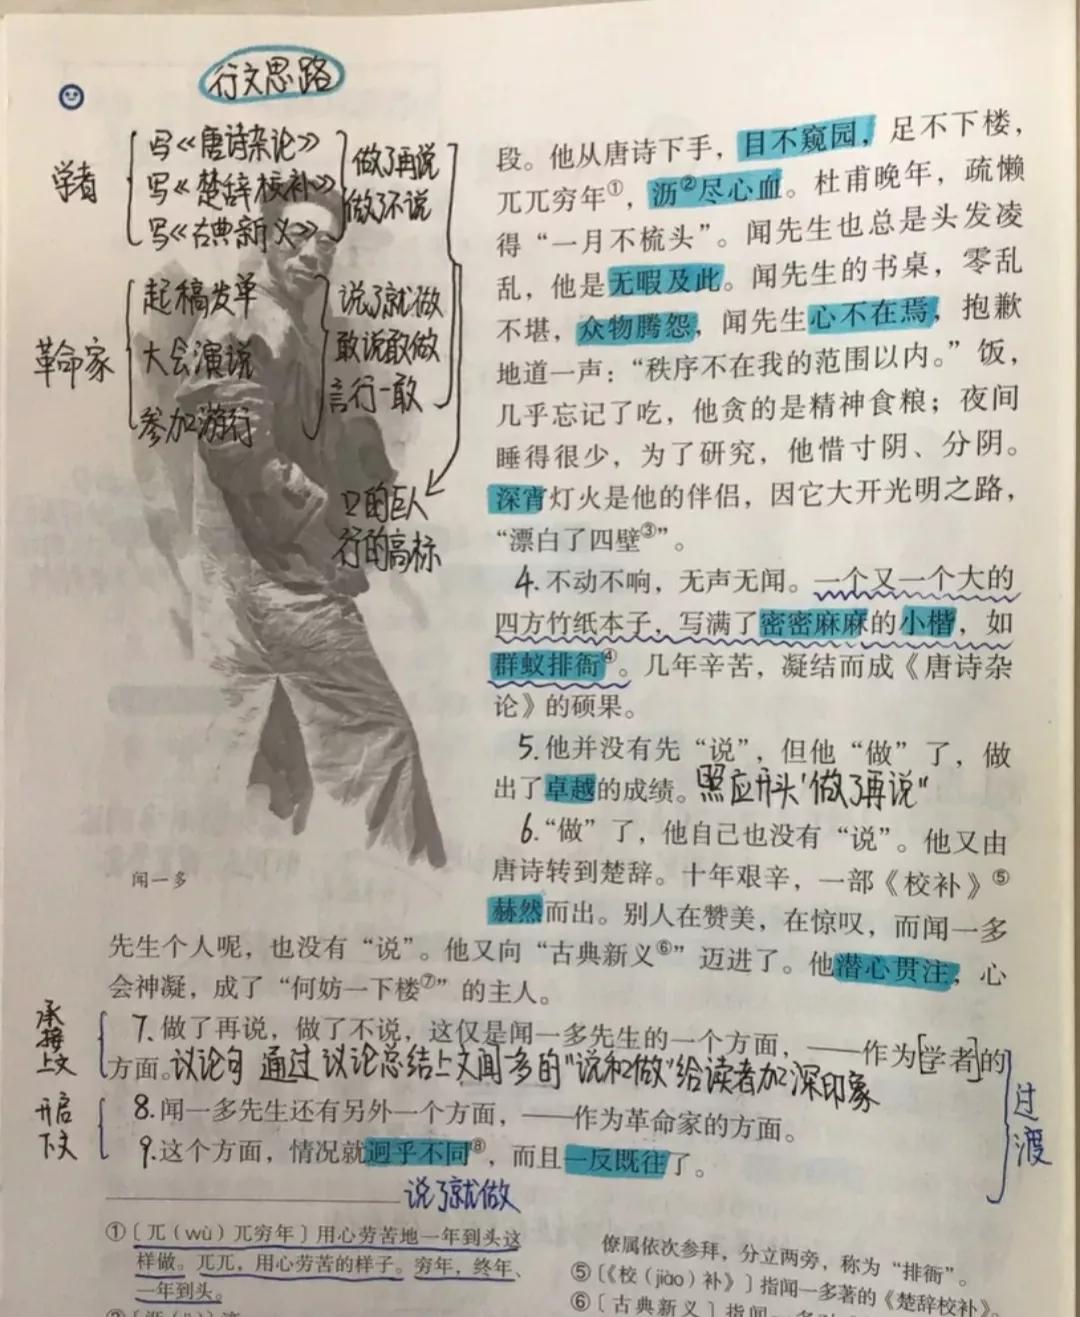 行文思路
学者
写《唐诗杂论》
写《楚辞校补》
写《古典新义》
做了再说
做了不说
革命家
起稿发单
大会演说
参加游行
说了就做
敢说敢做
言行一致
口的巨人
行的高标
闻一多
段。他从唐诗下手，目不窥园，足不下楼，
兀兀穷年①，沥②尽心血。杜甫晚年，疏懒
得“一月不梳头”。闻先生也总是头发凌
乱，他是无暇及此。闻先生的书桌，零乱
不堪，众物腾怨，闻先生心不在焉，抱歉
地道一声：“秩序不在我的范围以内。”饭，
几乎忘记了吃，他贪的是精神食粮；夜间
睡得很少，为了研究，他惜寸阴、分阴。
深宵灯火是他的伴侣，因它大开光明之路，
“漂白了四壁③”。
4.不动不响，无声无闻。一个又一个大的
四方竹纸本子，写满了密密麻麻的小楷，如
群蚁排衙④。几年辛苦，凝结而成《唐诗杂
论》的硕果。
5.他并没有先“说”，但他“做”了，做
出了卓越的成绩。照应开头‘做了再说”
6.“做”了，他自己也没有“说”。他又由
唐诗转到楚辞。十年艰辛，一部《校补》⑤
赫然而出。别人在赞美，在惊叹，而闻一多
先生个人呢，也没有“说”。他又向“古典新义⑥”迈进了。他潜心贯注，心
会神凝，成了“何妨一下楼⑦”的主人。
承接上文
7.做了再说，做了不说，这仅是闻一多先生的一个方面，——作为[学者]的
方面。议论句 通过议论总结上文闻多的“说和做”给读者加深印象
开启下文
8.闻一多先生还有另外一个方面，——作为革命家的方面。
9.这个方面，情况就迥乎不同⑧，而且一反既往了。
过渡
说了就做
①〔兀（wù）兀穷年〕用心劳苦地一年到头这
样做。兀兀，用心劳苦的样子。穷年，终年、
一年到头。
僚属依次参拜，分立两旁，称为“排衙”。
⑤〔《校（jiào）补》〕指闻一多著的《楚辞校补》。
⑥〔古典新义〕指闻一多